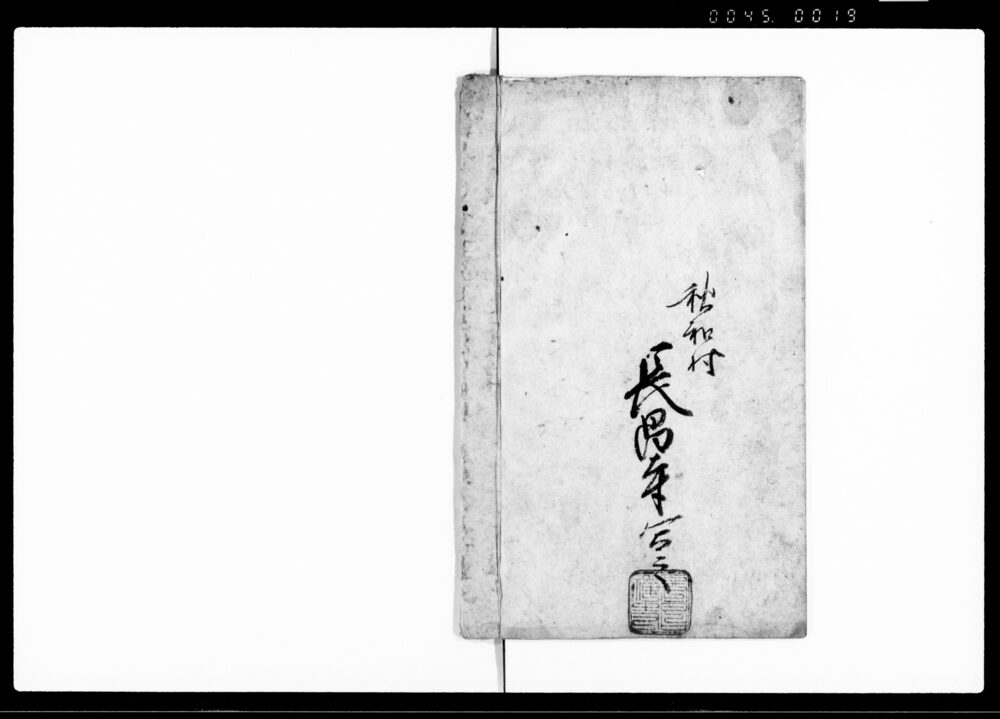 0045. 0019
秋和村
長昌寺